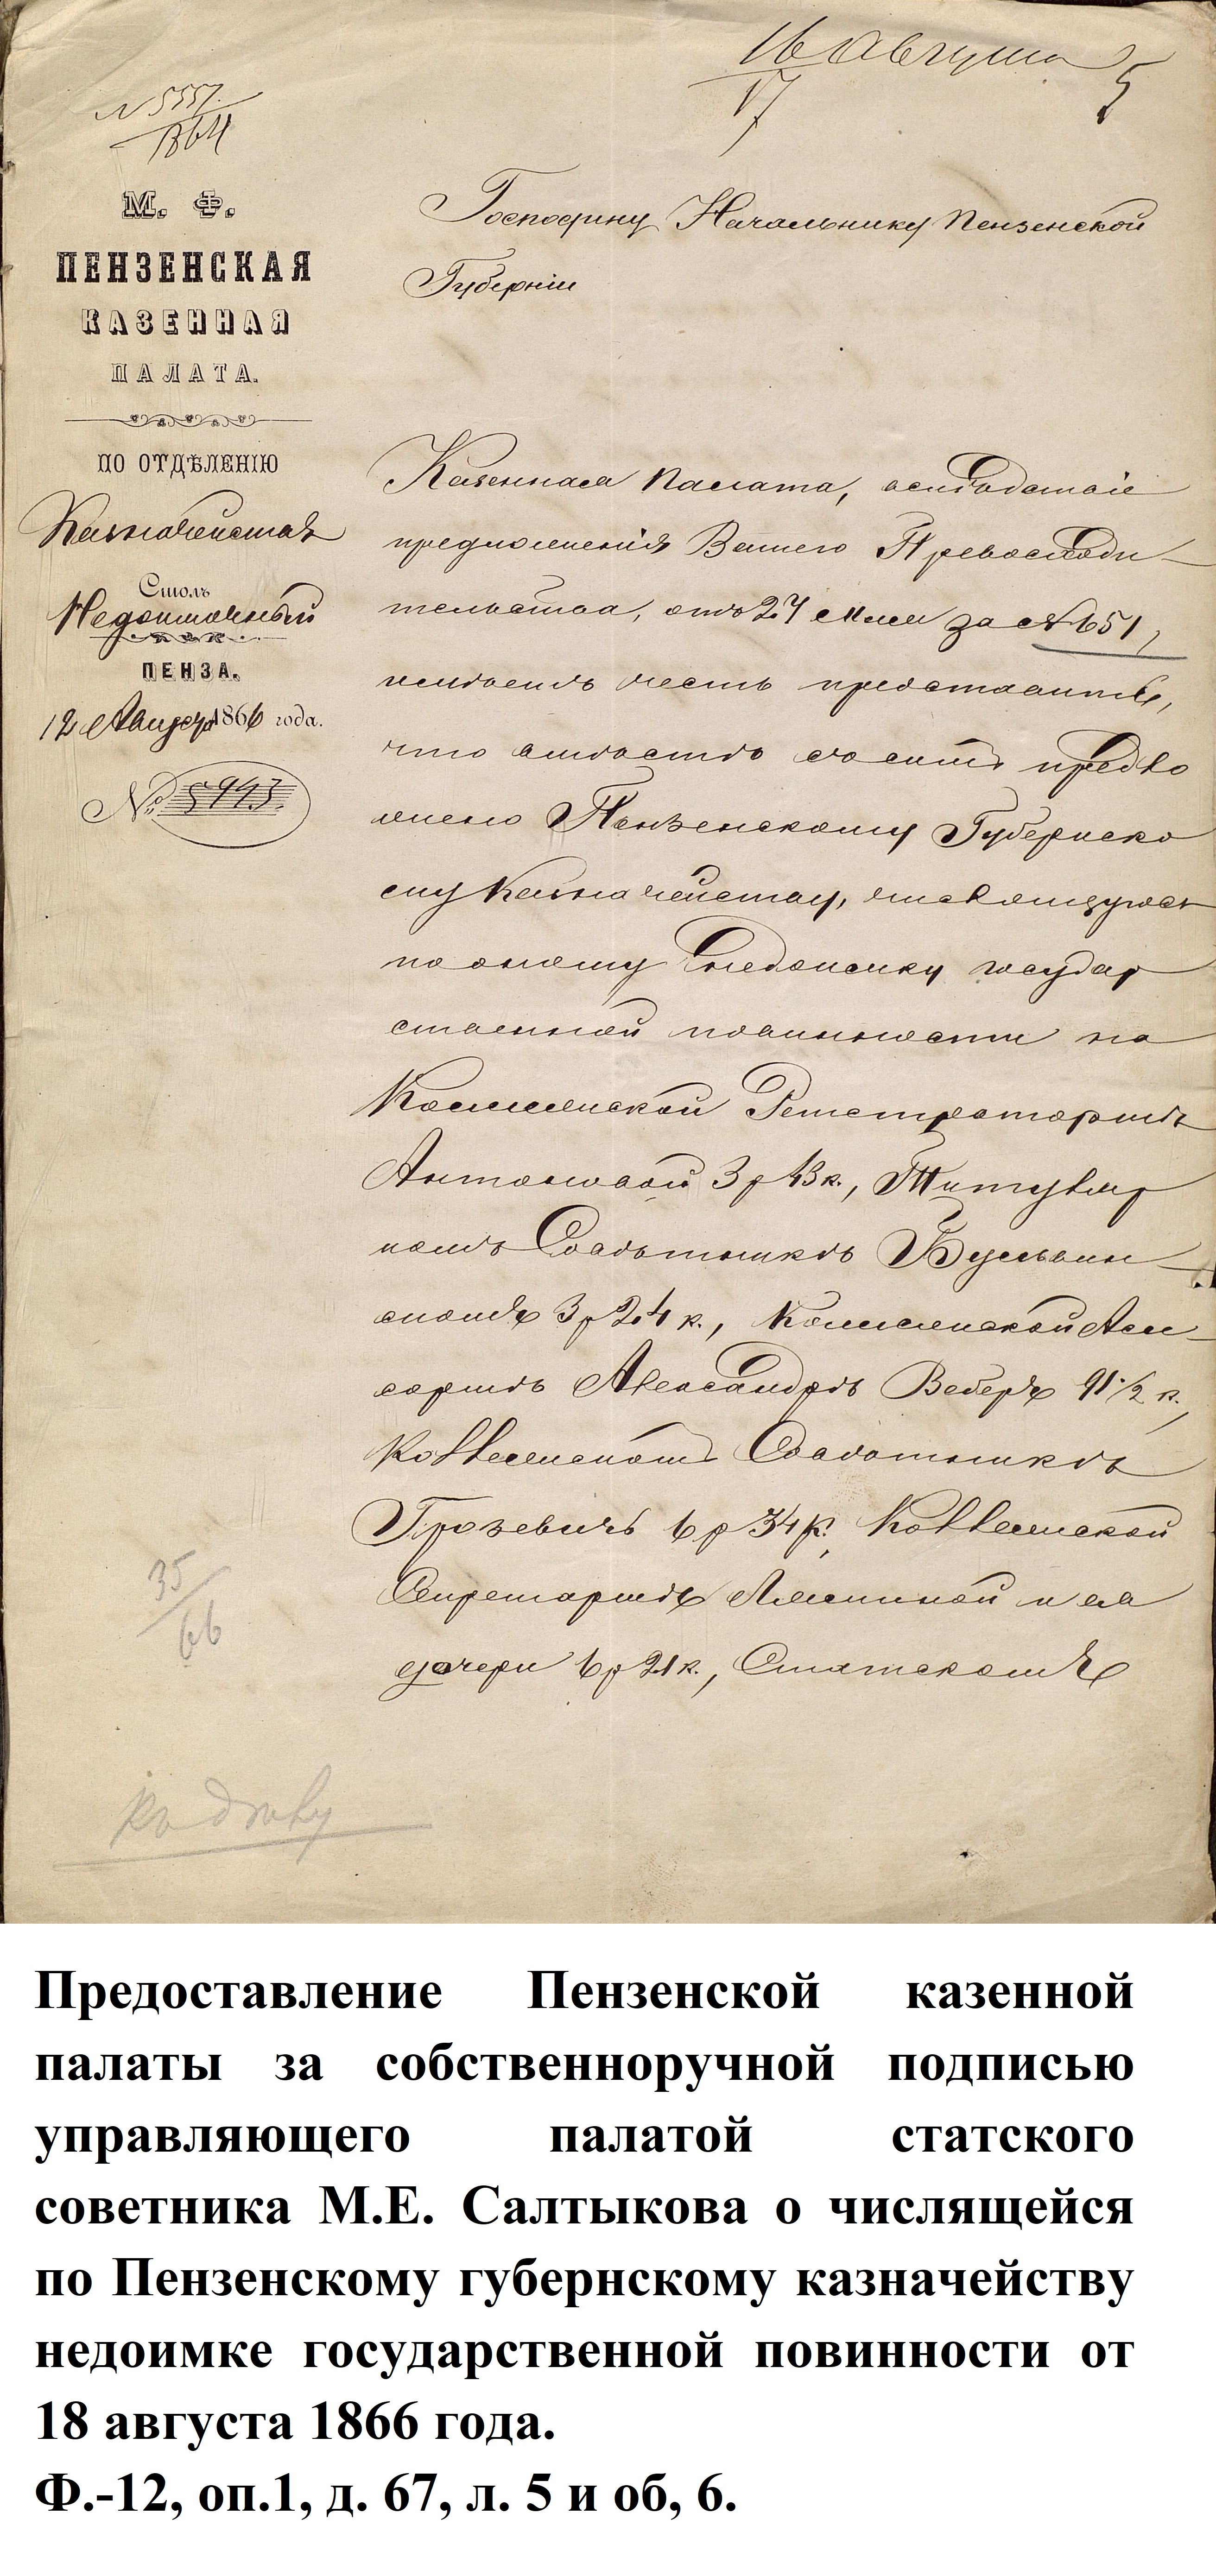 16 Августа
17
5
№ 5557
1364
М. Ф.
ПЕНЗЕНСКАЯ
КАЗЕННАЯ
ПАЛАТА.
ПО ОТДѢЛЕНІЮ
Казначействъ
Столъ
Недоимочный
ПЕНЗА.
12 Августа 1866 года.
№ 5943
Господину Начальнику Пензенской
Губерніи
Казенная Палата, вслѣдствіе
предложенія Вашего Превосходи-
тельства, отъ 27 Мая за № 651,
имѣетъ честь представить,
что вмѣстѣ съ симъ предло
жено Пензенскому Губернско
му Казначейству, числящуюся
по оному недоимку государ
ственной повинности на
Коллежской Регистраторшѣ
Антоновой 3 р 43 к., Титуляр
номъ Совѣтникѣ
3 р 24 к., Коллежской Асе-
соршѣ Александрѣ Веберъ 91 1/2 к.,
Коллежскомъ Совѣтникѣ
Грозевичъ 6 р 34 к., Коллежской
Секретаршѣ и ея
дочери 6 р 21 к., Статскомъ
35
66
къ дѣлу
Предоставление Пензенской казенной
палаты за собственноручной подписью
управляющего палатой статского
советника М.Е. Салтыкова о числящейся
по Пензенскому губернскому казначейству
недоимке государственной повинности от
18 августа 1866 года.
Ф.-12, оп.1, д. 67, л. 5 и об, 6.